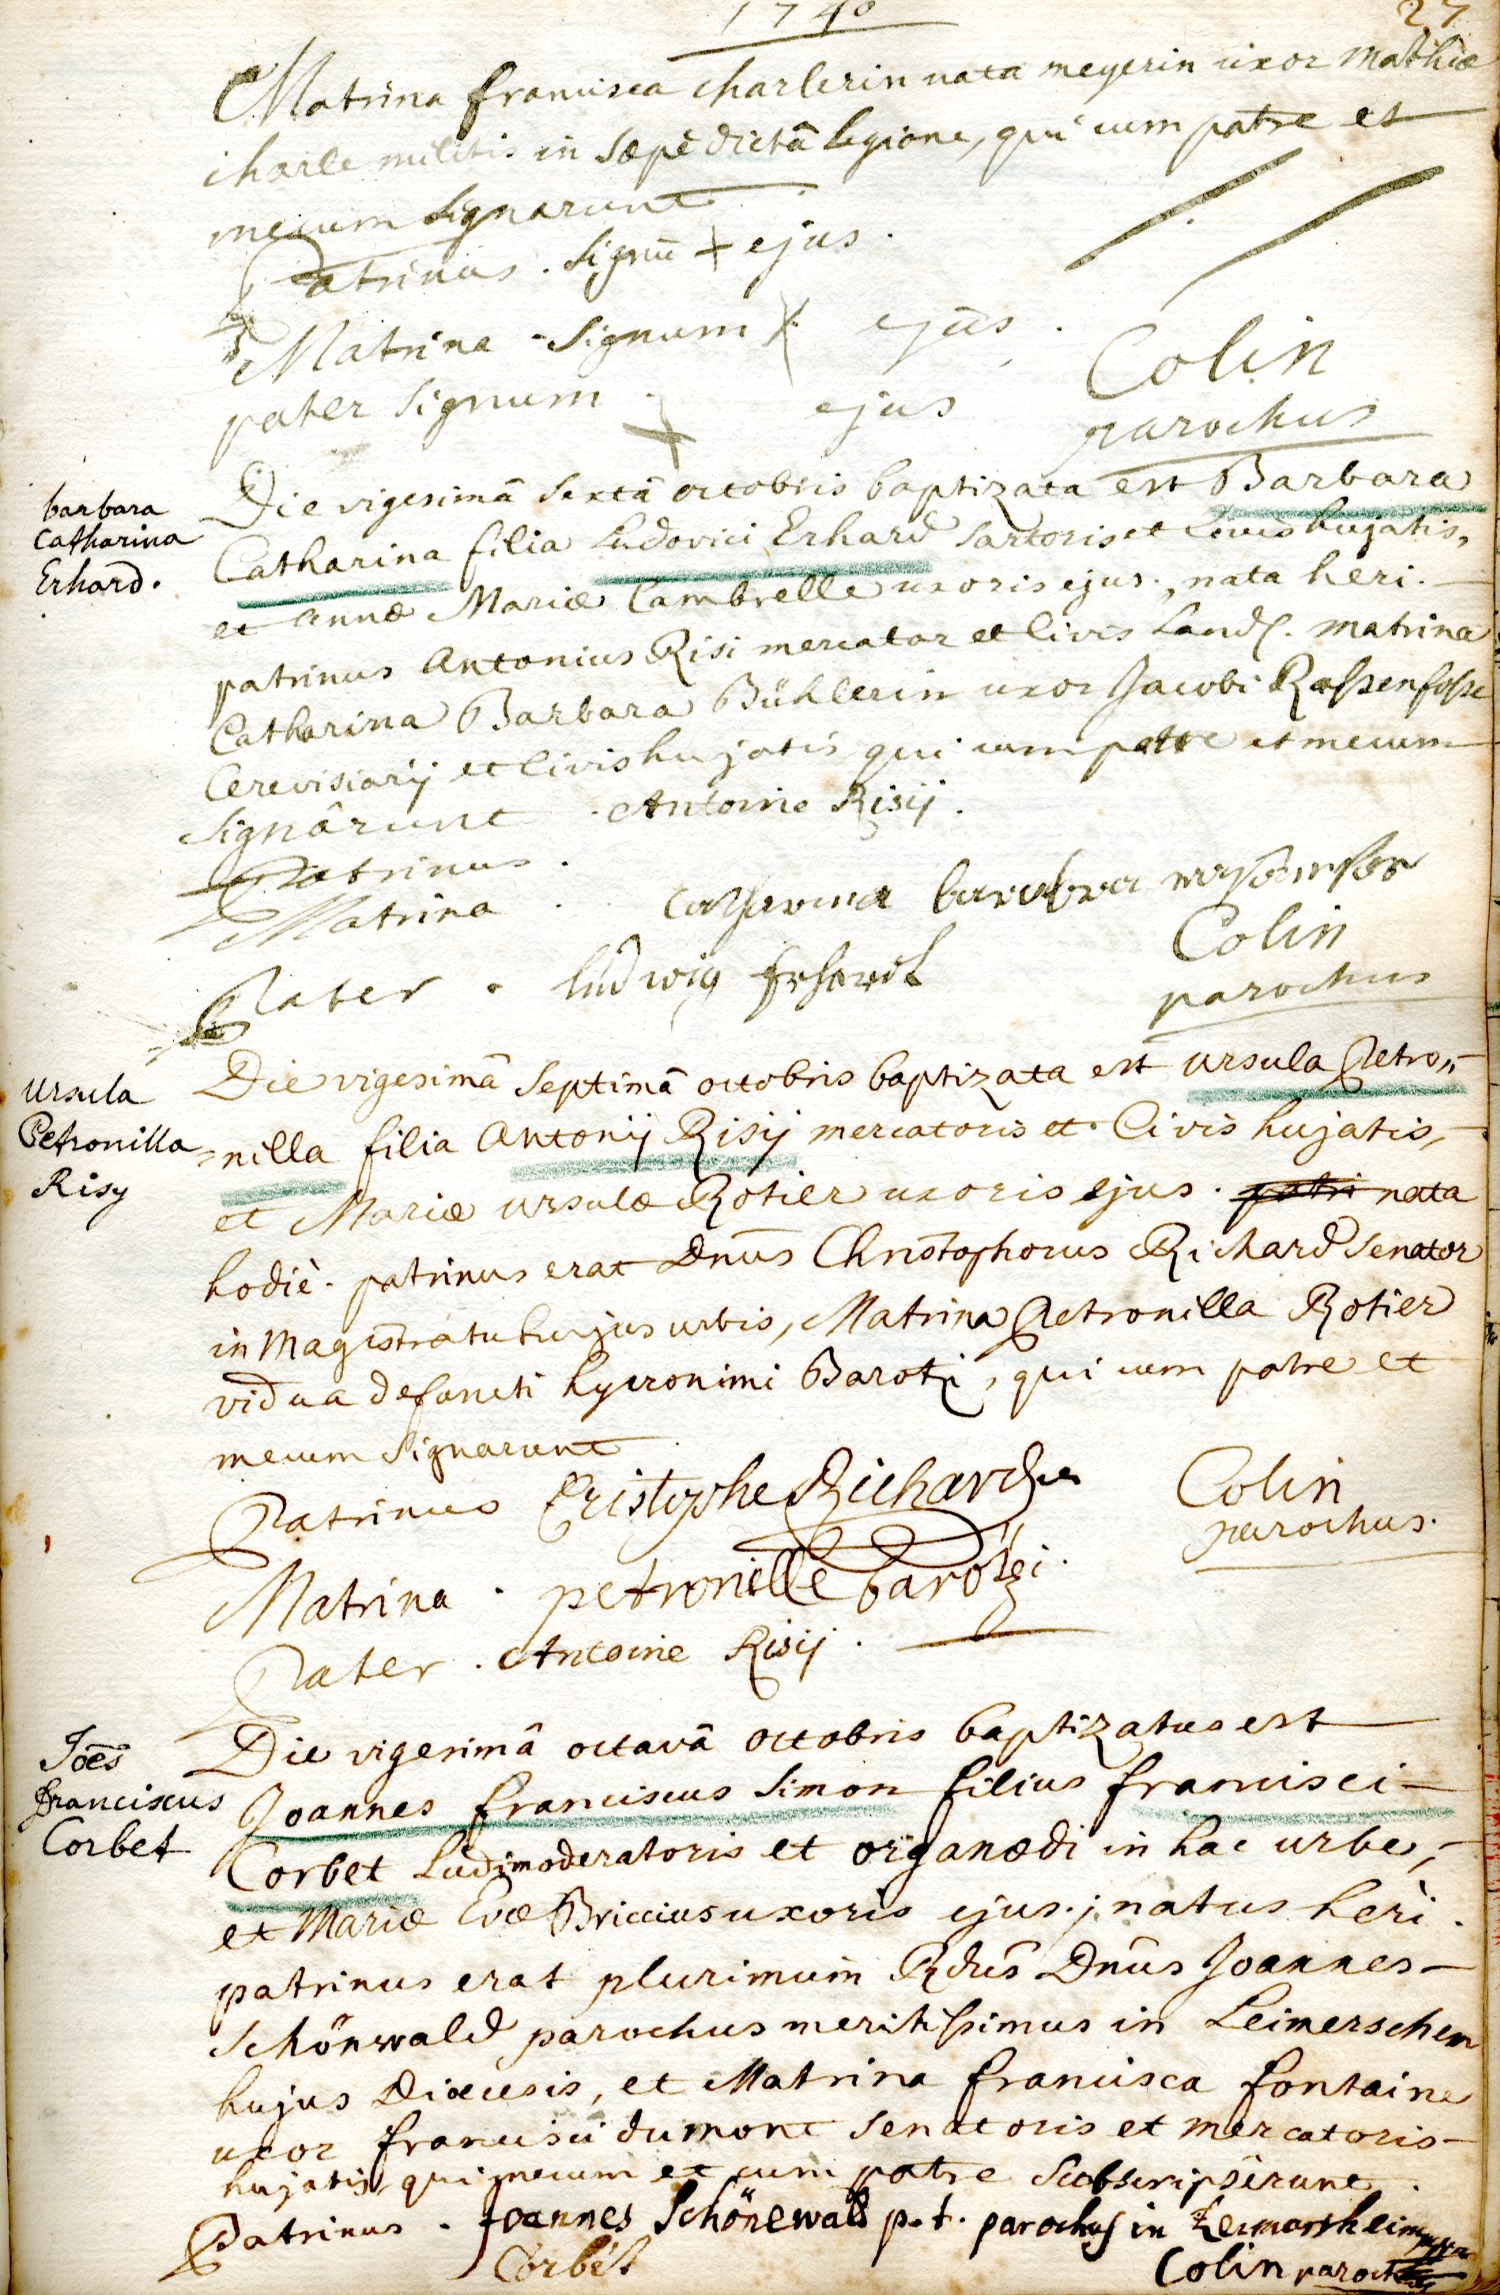 1740
27
Matrina francisca charlerin nata meyerin uxor Mathiæ
charle militis in sæpè dictâ legione, qui cum patre et
mecum signarunt
Patrinus . signū + ejus .
Matrina - signum + ejus .
pater signum + ejus
Colin
parochus
barbara
Catharina
Erhard .
Die vigesimâ sextâ octobris baptizata est Barbara
Catharina filia Ludovici Erhard sartoris et Civis hujatis,
et annæ Mariæ Cambrelle uxoris ejus ., nata heri .
patrinus Antonius Risi mercator et Civis Land. matrina
Catharina Barbara Bühlerin uxor Jacobi Rassenfosse
Cerevisiarij et Civis hujatis qui cum patre et mecum
signârunt . Antoine Risij .
Patrinus .
Matrina . Catharina barbara
Pater . ludwig Erhardt
Colin
parochus
Ursula
Petronilla
Risy
Die vigesimâ septimâ octobris baptizata est ursula Petro,,
=nilla filia Antonij Risij mercatoris et Civis hujatis,
et Mariæ ursulæ Rotier uxoris ejus . patri nata
hodiè . patrinus erat Dnūs Christophorus Richard senator
in Magistratu hujus urbis, Matrina Petronilla Rotier
vidua defuncti hyeronimi Barozzi, qui cum patre et
mecum signarunt
Patrinus Cristophe Richard
Matrina . petronille barozzi .
Pater . Antoine Risij .
Colin
parochus .
Joēs
franciscus
Corbet
Die vigesimâ octavâ octobris baptizatus est
Joannes franciscus Simon filius francisci
Corbet Ludimoderatoris et organædi in hac urbe,
et Mariæ Evæ Briccius uxoris ejus ; natus heri .
patrinus erat plurimum Rdūs Dnūs Joannes
Schönwald parochus meritissimus in Leimerschen
hujus Diœcesis, et Matrina francisca fontaine
uxor francisci dumont senatoris et mercatoris
hujatis, qui mecum et cum patre subscripserunt .
Patrinus . Joannes Schönewald p. t. parochus in Leimersheim
Corbet
Colin parochus